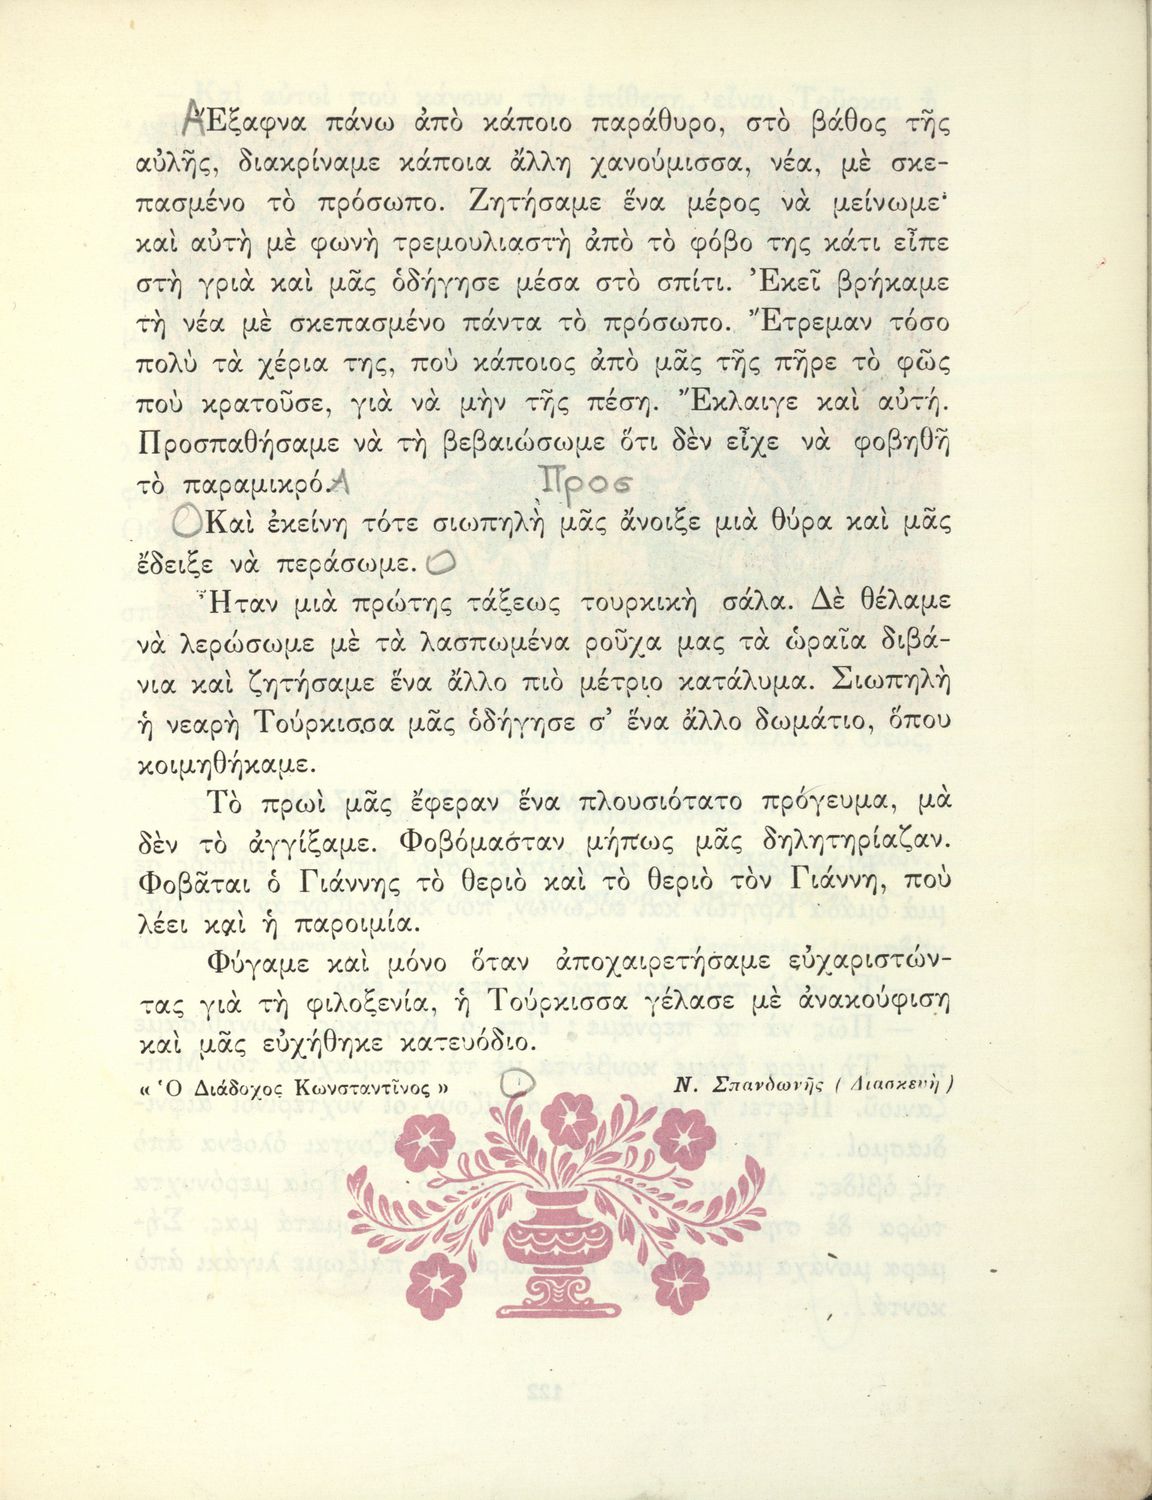 Α Ἔξαφνα πάνω ἀπὸ κάποιο παράθυρο, στὸ βάθος τῆς
αὐλῆς, διακρίναμε κάποια ἄλλη χανούμισσα, νέα, μὲ σκε-
πασμένο τὸ πρόσωπο. Ζητήσαμε ἕνα μέρος νὰ μείνωμε·
καὶ αὐτὴ μὲ φωνὴ τρεμουλιαστὴ ἀπὸ τὸ φόβο της κάτι εἶπε
στὴ γριὰ καὶ μᾶς ὁδήγησε μέσα στὸ σπίτι. Ἐκεῖ βρήκαμε
τὴ νέα μὲ σκεπασμένο πάντα τὸ πρόσωπο. Ἔτρεμαν τόσο
πολὺ τὰ χέρια της, ποὺ κάποιος ἀπὸ μᾶς τῆς πῆρε τὸ φῶς
ποὺ κρατοῦσε, γιὰ νὰ μὴν τῆς πέση. Ἔκλαιγε καὶ αὐτή.
Προσπαθήσαμε νὰ τὴ βεβαιώσωμε ὅτι δὲν εἶχε νὰ φοβηθῆ
τὸ παραμικρό. Α Προς
Καὶ ἐκείνη τότε σιωπηλὴ μᾶς ἄνοιξε μιὰ θύρα καὶ μᾶς
ἔδειξε νὰ περάσωμε.
Ἦταν μιὰ πρώτης τάξεως τουρκικὴ σάλα. Δὲ θέλαμε
νὰ λερώσωμε μὲ τὰ λασπωμένα ροῦχα μας τὰ ὡραῖα διβά-
νια καὶ ζητήσαμε ἕνα ἄλλο πιὸ μέτριο κατάλυμα. Σιωπηλὴ
ἡ νεαρὴ Τούρκισσα μᾶς ὁδήγησε σ’ ἕνα ἄλλο δωμάτιο, ὅπου
κοιμηθήκαμε.
Τὸ πρωὶ μᾶς ἔφεραν ἕνα πλουσιότατο πρόγευμα, μὰ
δὲν τὸ ἀγγίξαμε. Φοβόμασταν μήπως μᾶς δηλητηρίαζαν.
Φοβᾶται ὁ Γιάννης τὸ θεριὸ καὶ τὸ θεριὸ τὸν Γιάννη, ποὺ
λέει καὶ ἡ παροιμία.
Φύγαμε καὶ μόνο ὅταν ἀποχαιρετήσαμε εὐχαριστών-
τας γιὰ τὴ φιλοξενία, ἡ Τούρκισσα γέλασε μὲ ἀνακούφιση
καὶ μᾶς εὐχήθηκε κατευόδιο.
« Ὁ Διάδοχος Κωνσταντῖνος » Ν. Σπανδωνῆς ( Διασκευὴ )